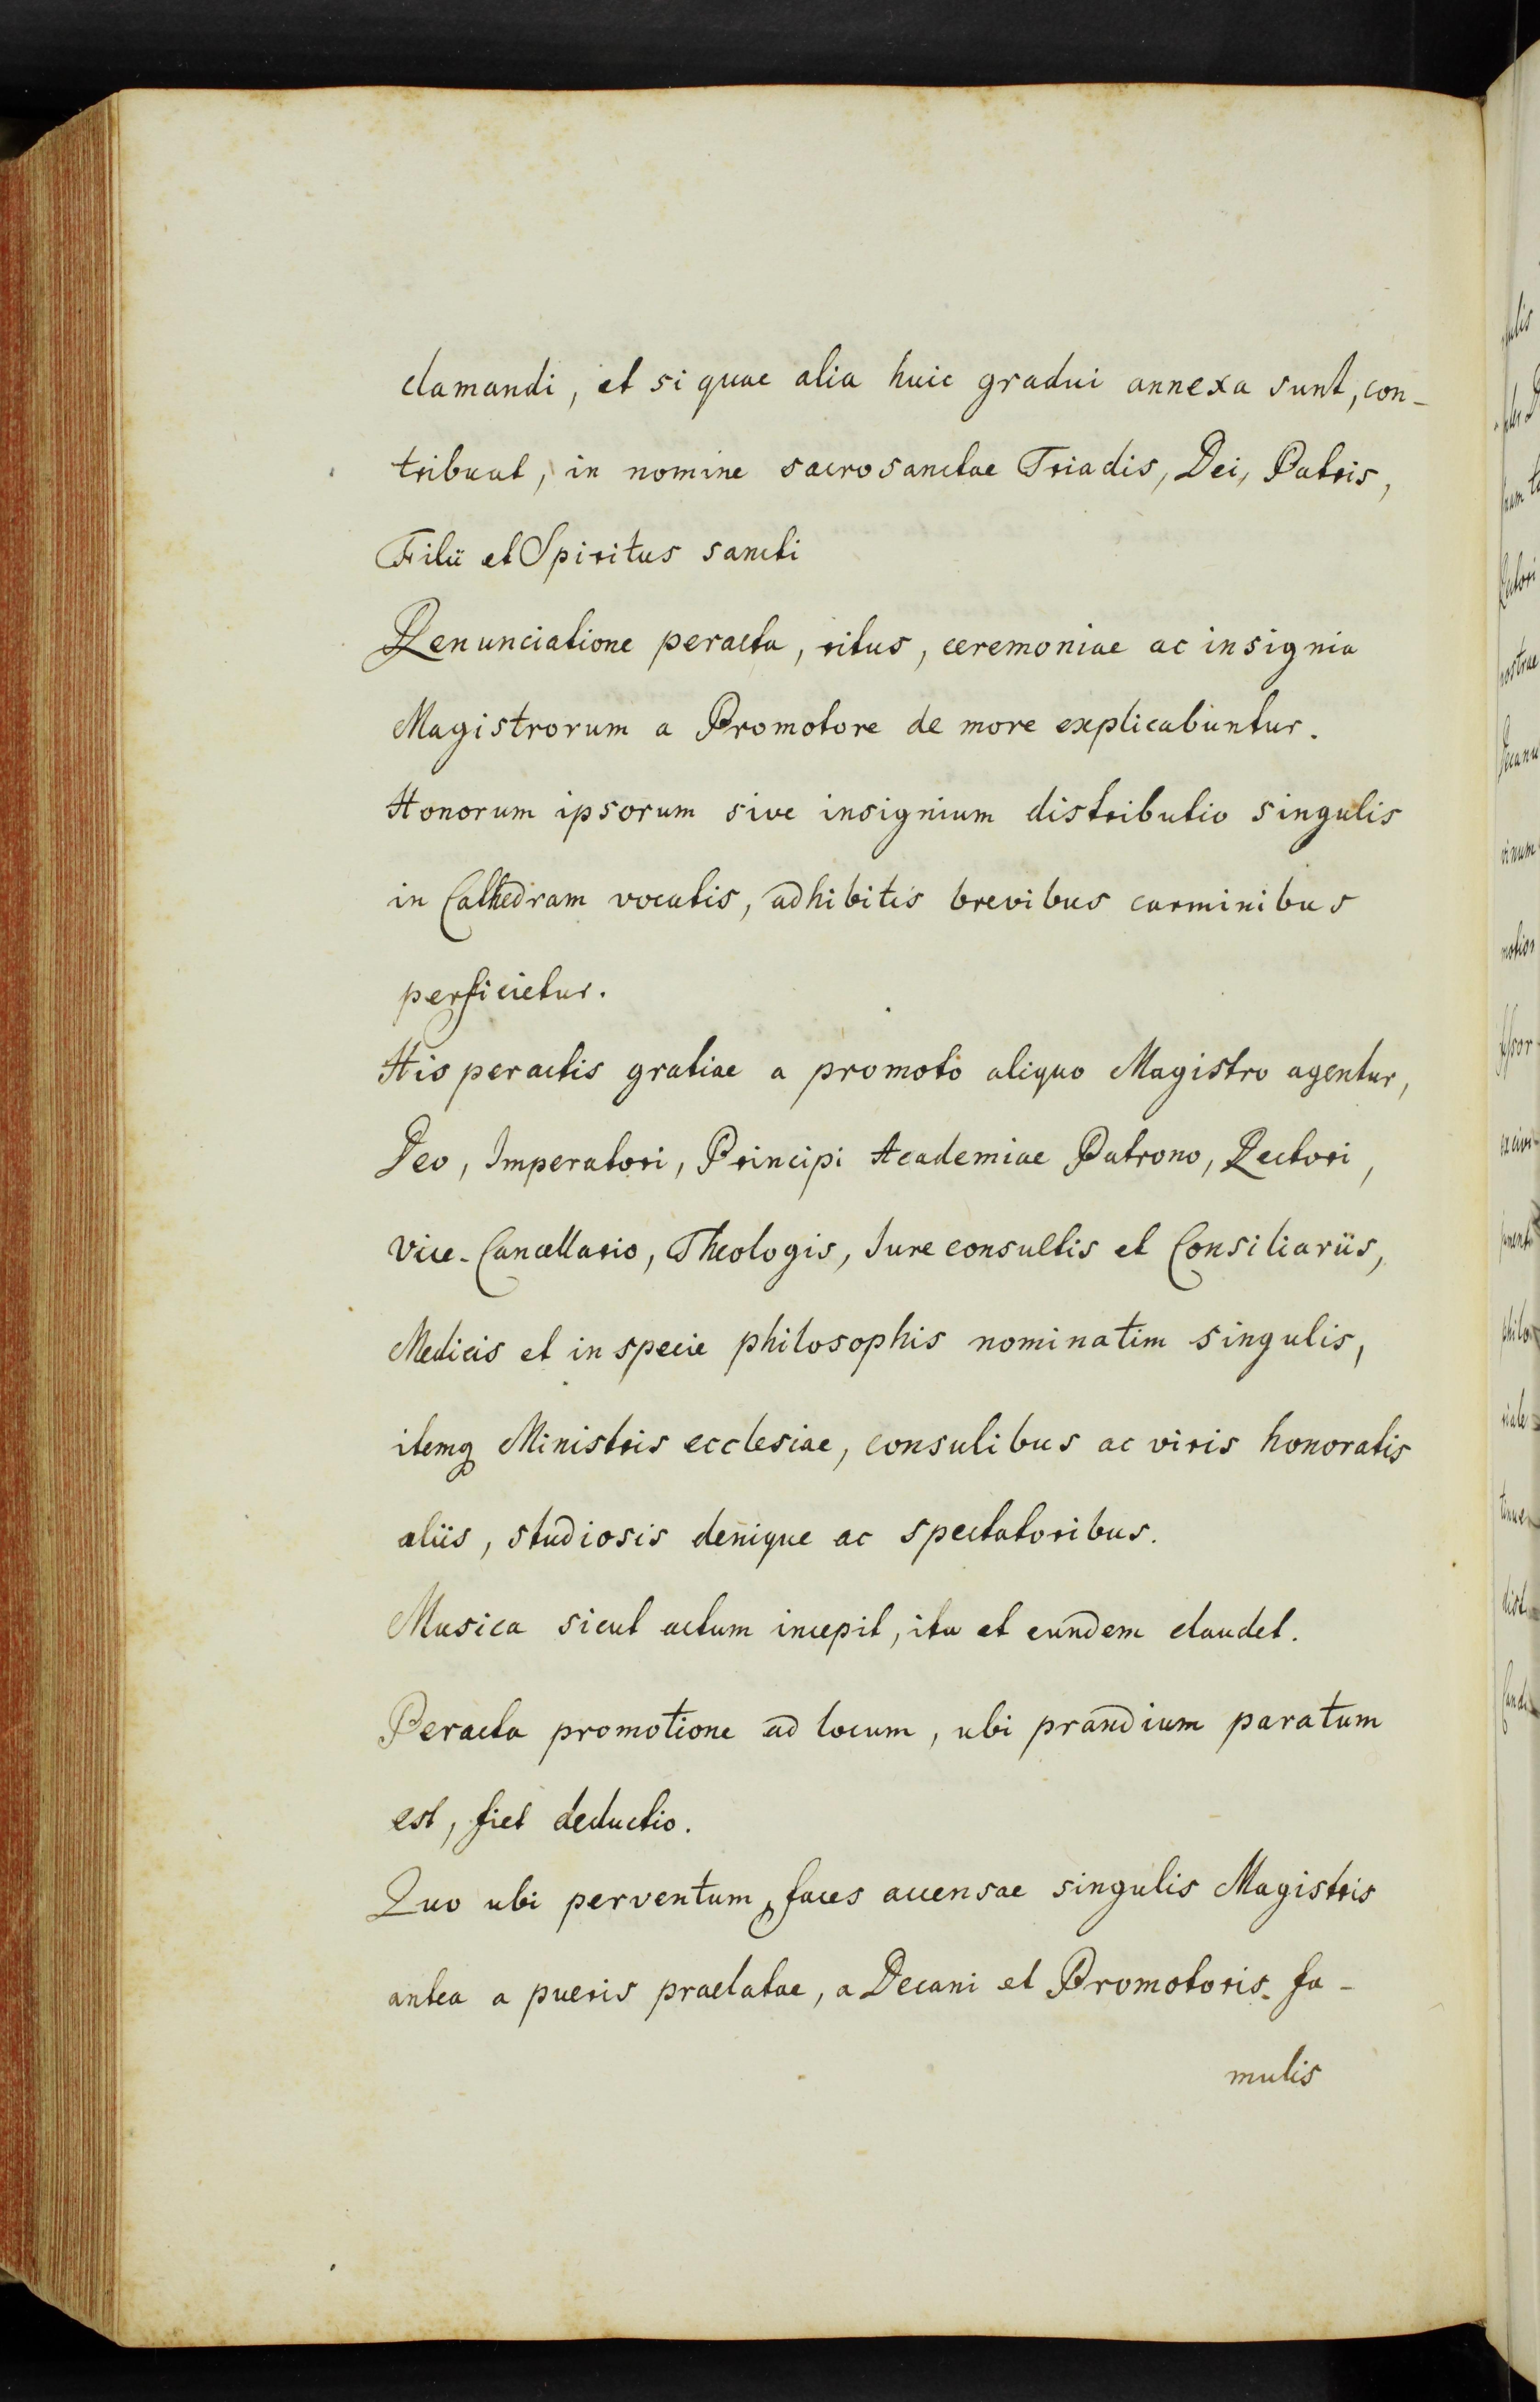 clamandi, et si quae alia huic gradui annexa sunt, con-
tribuat, in nomine sacrosanctae Triadis, Dei, Patris,
Filii et Spiritus sancti
Renunciatione peracta, ritus, ceremoniae ac insignia
Magistrorum a Promotore de more explicabuntur.
Honorum ipsorum sive insignium distributio singulis
in Cathedram vocatis, adhibitis brevibus carminibus
perficietur.
His peractis gratiae a promoto aliquo Magistro agentur,
Deo, Imperatori, Principi Academiae Patrono, Rectori,
Vice-Cancellario, Theologis, Jureconsultis et Consiliariis,
Medicis et in specie philosophis nominatim singulis,
itemq Ministris ecclesiae, consulibus ac viris honoratis
aliis, studiosis denique ac spectatoribus.
Musica sicut actum incepit, ita et eundem claudet.
Peracta promotione ad locum, ubi prandium paratum
est, fiet deductio.
Quo ubi perventum, faces accensae singulis Magistris
antea a pueris praelatae, a Decani et Promotoris fa-
mulis